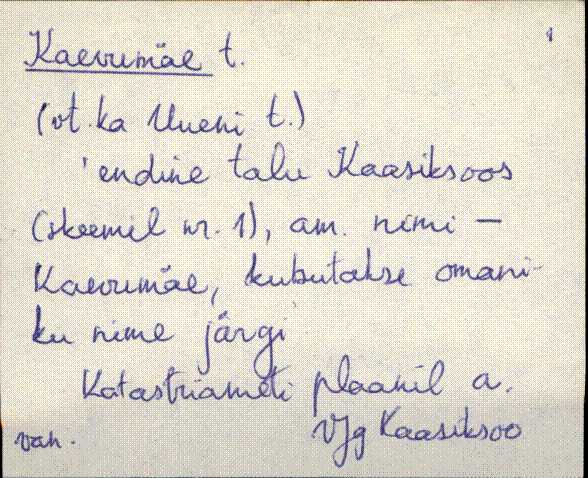 1
Kaevumäe t.
(vt. ka Uueni t.)
'endine talu Kaasiksoos
(skeemil nr. 1), am. nimi –
Kaevumäe, kutsutakse omani-
ku nime järgi
Katastriameti plaanil a.
van. Vjg Kaasiksoo